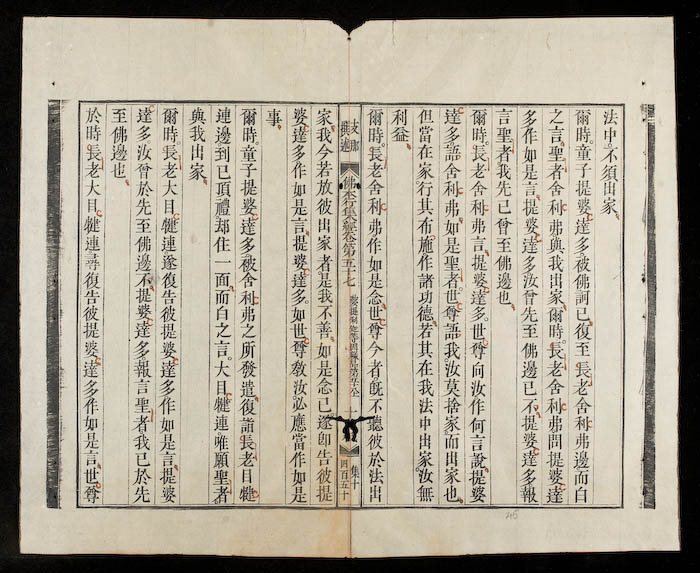 法中不須出家
爾時童子提婆達多被佛訶已復至長老舍利弗邊而白
之言聖者舍利弗與我出家爾時長老舍利弗問提婆達
多作如是言提婆達多曾先至佛邊已不提婆達多報
言聖者我先已曾至佛邊也
爾時長老舍利弗言提婆達多世尊向汝作何言說提婆
達多語舍利弗如是聖者世尊語我汝莫捨家而出家也
但當在家行其布施作諸功德若其在我法中出家汝無
利益
爾時長老舍利弗作如是念世尊今者旣不聽彼於法出
支那
撰述
佛本行集經卷第五十七
集十
四百五十
家我今若放彼出家者是我不善如是念已遂卽告彼提
婆達多作如是言提婆達多如世尊敎汝必應當作如是
事
爾時童子提婆達多被舍利弗之所發遣復詣長老目犍
連邊到已頂禮却住一面而白之言大目犍連唯願聖者
與我出家
爾時長老大目犍連遂復告彼提婆達多作如是言提婆
達多汝曾於先至佛邊不提婆達多報言聖者我已於先
至佛邊也
於時長老大目犍連尋復告彼提婆達多作如是言世尊